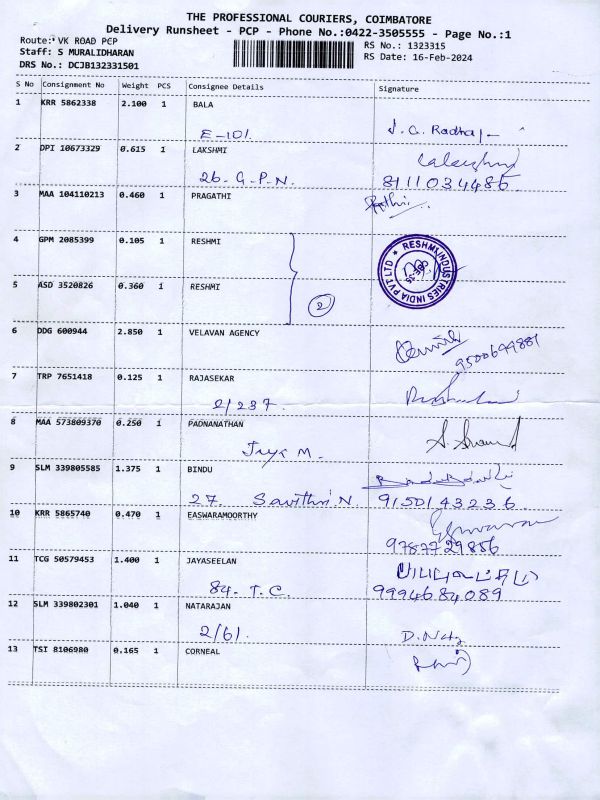 THE PROFESSIONAL COURIERS, COIMBATORE
Delivery Runsheet - PCP - Phone No.:0422-3505555 - Page No.:1
Route: VK ROAD PCP
RS No.: 1323315
Staff: S MURALIDHARAN
RS Date: 16-Feb-2024
DRS No.: DCJB132331501
S No Consignment No Weight PCS Consignee Details Signature
1 KRR 5862338 2.100 1 BALA
E-101. J. G. Radhaj
2 DPI 10673329 0.615 1 LAKSHMI
26. G. P. N. 8111034486
3 MAA 104110213 0.460 1 PRAGATHI
4 GPM 2085399 0.105 1 RESHMI
RESHMI INDUSTRIES INDIA PVT LTD
5 ASD 3520826 0.360 1 RESHMI
2
6 DDG 600944 2.850 1 VELAVAN AGENCY
9500699881
7 TRP 7651418 0.125 1 RAJASEKAR
2/237.
8 MAA 573809370 0.250 1 PADNANATHAN
Jaya M. S. Anand
9 SLM 339805585 1.375 1 BINDU
27. Savithri N. 9150143236
10 KRR 5865740 0.470 1 EASWARAMOORTHY
9787729856
11 TCG 50579453 1.400 1 JAYASEELAN
84. T. C. 9994684089
12 SLM 339802301 1.040 1 NATARAJAN
2/61.
13 TSI 8106980 0.165 1 CORNEAL